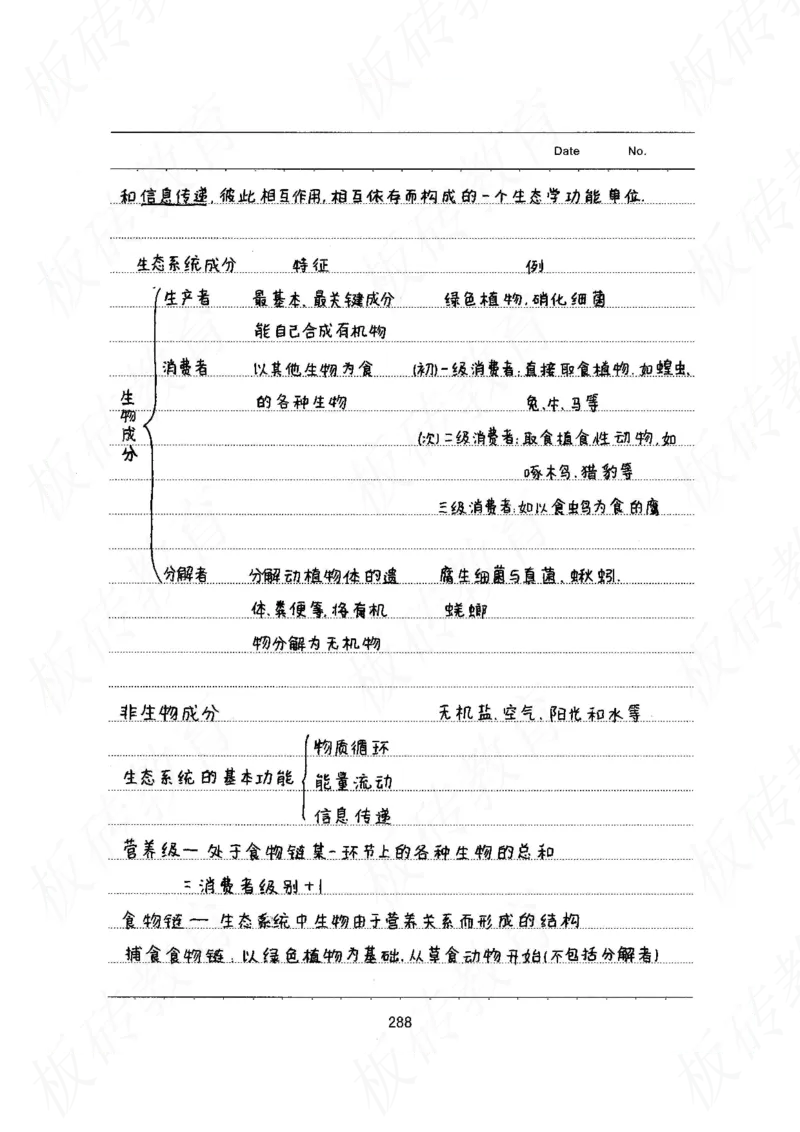 Date No.
和信息传递,彼此相互作用,相互依存而构成的一个生态学功能单位.
生态系统成分 特征 例
生产者 最基本、最关键成分 绿色植物,硝化细菌
能自己合成有机物
消费者 以其他生物为食 (初)一级消费者:直接取食植物.如蝗虫、
生物成分
的各种生物 兔、牛、马等
(次)二级消费者:取食植食性动物,如
啄木鸟、猎豹等
三级消费者:如以食虫鸟为食的鹰
分解者 分解动植物体的遗 腐生细菌与真菌、蚯蚓.
体、粪便等,将有机 蜣螂
物分解为无机物
非生物成分 无机盐、空气、阳光和水等
物质循环
生态系统的基本功能 能量流动
信息传递
营养级一 处于食物链某一环节上的各种生物的总和
=消费者级别+1
食物链一 生态系统中生物由于营养关系而形成的结构
捕食食物链:以绿色植物为基础.从草食动物开始(不包括分解者)
288
板砖教育